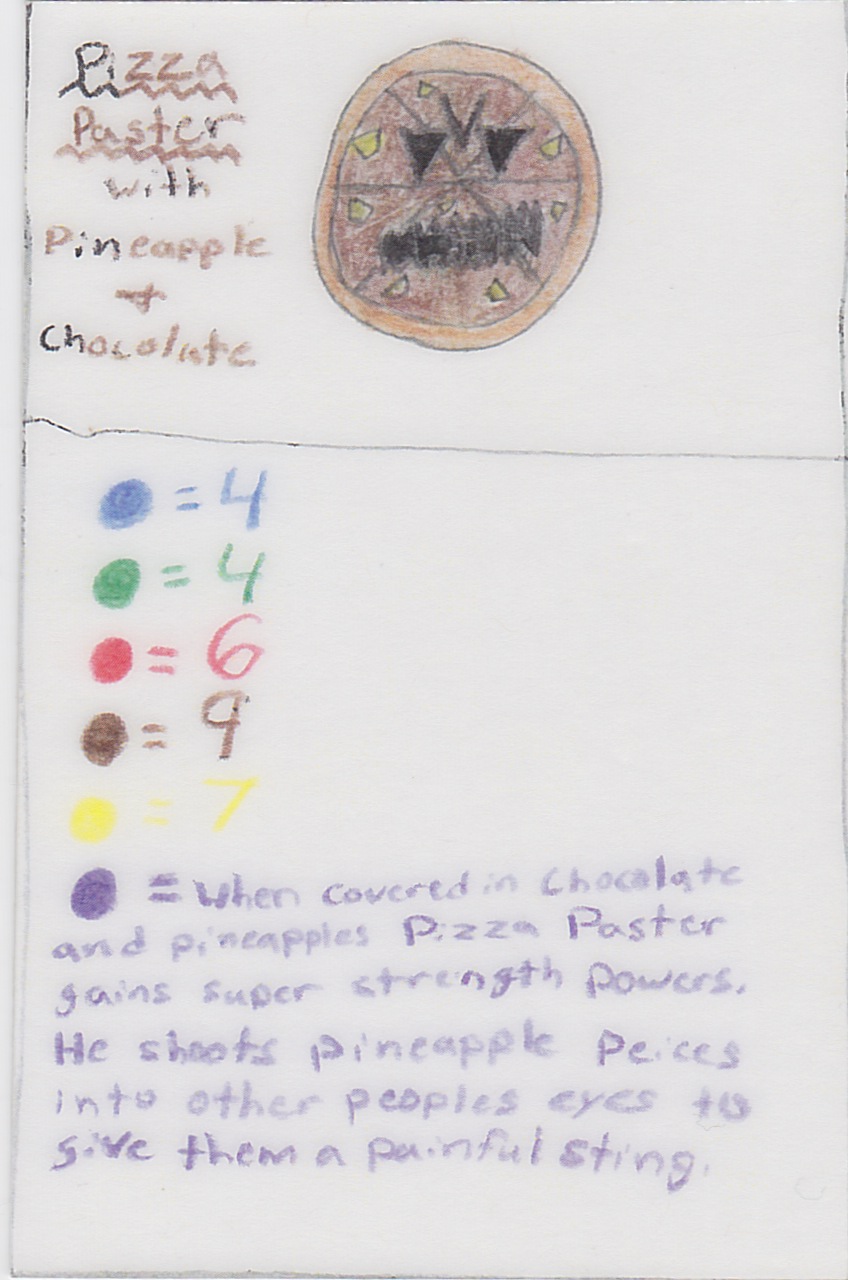 Pizza
Paster
with
Pineapple
+
Chocolate
= 4
= 4
= 6
= 9
= 7
= When covered in Chocolate
and pineapples Pizza Paster
gains super strength Powers.
He shoots pineapple Peices
into other peoples eyes to
give them a painful sting.